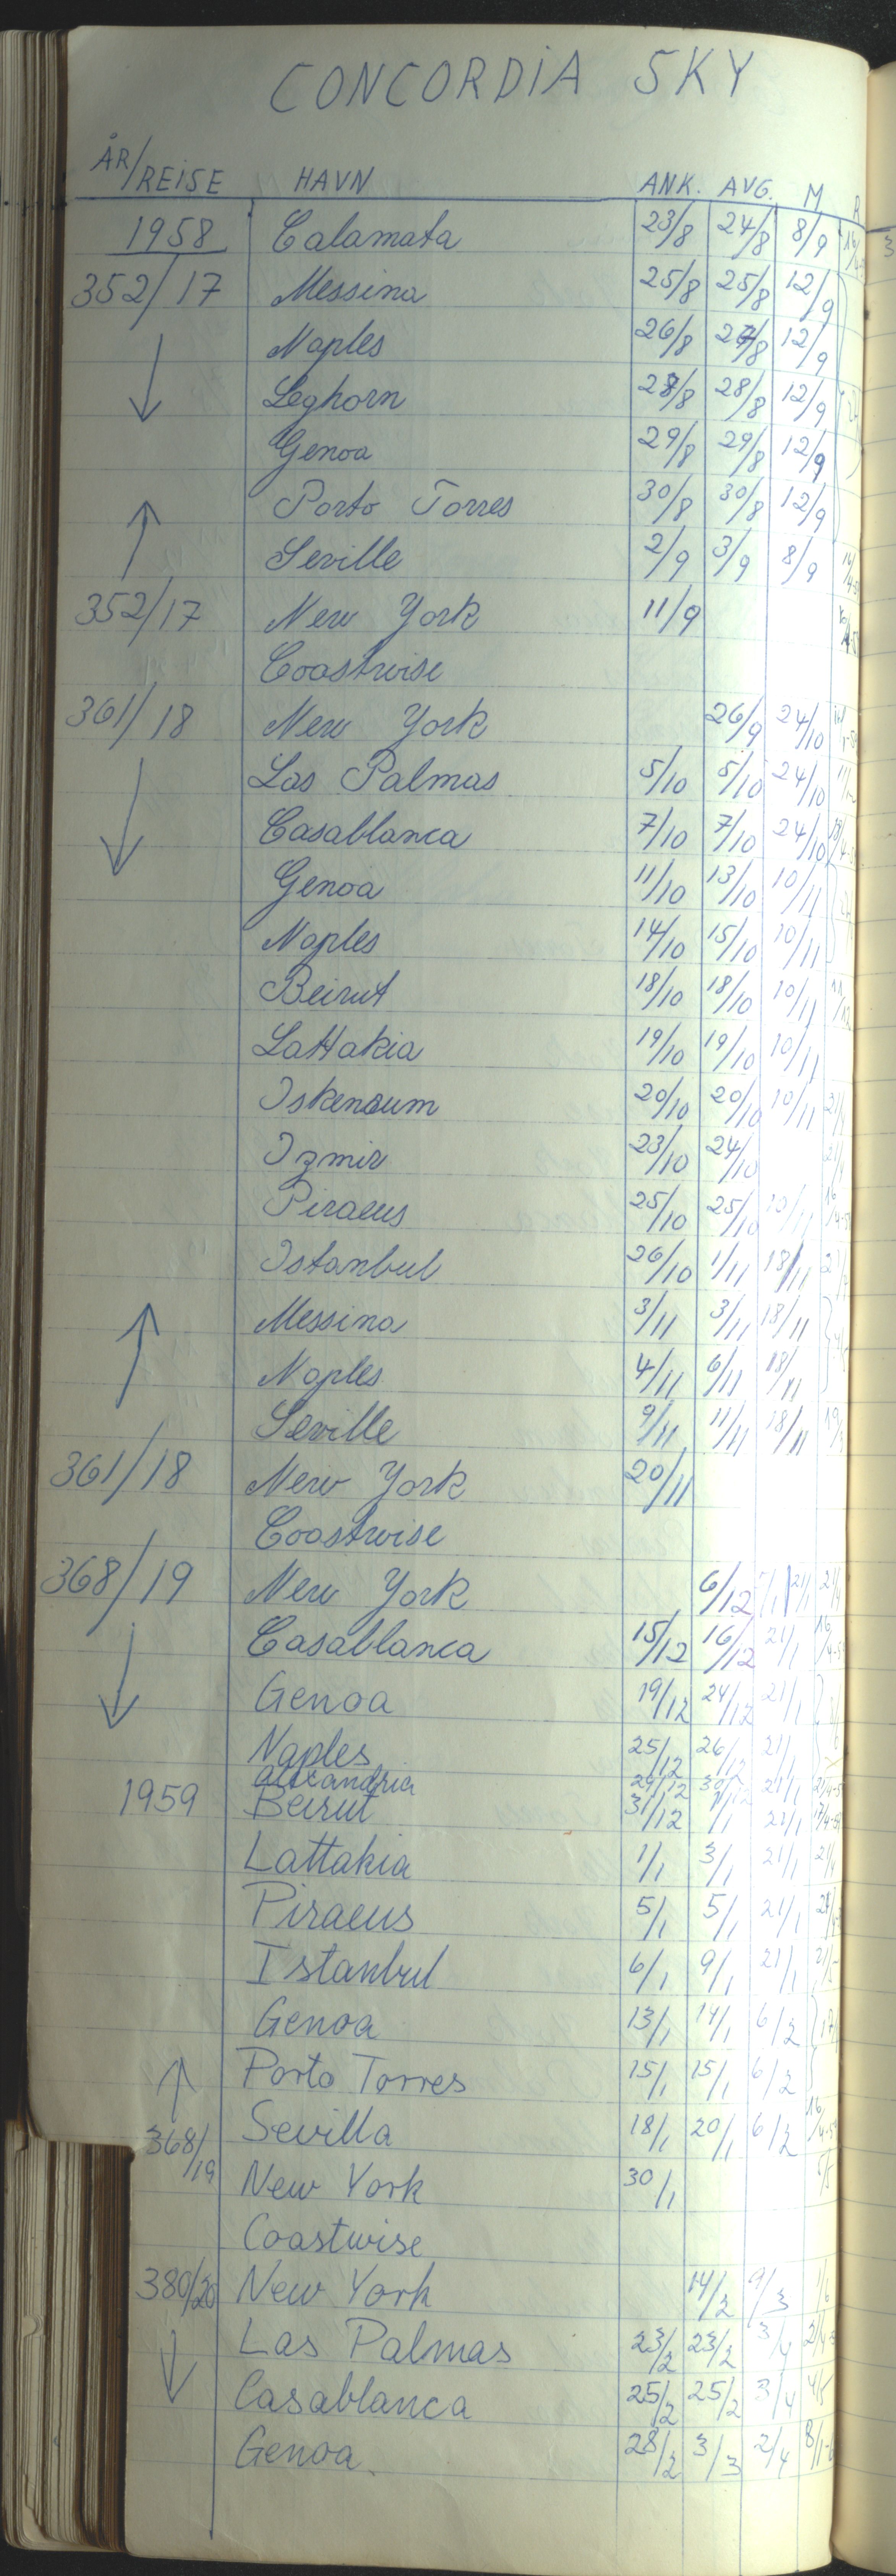 CONCORDIA SKY
ÅR/REISE HAVN ANK. AVG. M R
1958 Calamata 23/8 24/8 8/9
352/17 Messina 25/8 25/8 12/9
Naples 26/8 27/8 12/9
Leghorn 28/8 28/8 12/9
Genoa 29/8 29/8 12/9
Porto Torres 30/8 30/8 12/9
Seville 2/9 3/9 8/9
352/17 New York 11/9
Coastwise
361/18 New York 26/9 24/10
Las Palmas 5/10 5/10 24/10
Casablanca 7/10 7/10 24/10
Genoa 11/10 13/10 10/11
Naples 14/10 15/10 10/11
Beirut 18/10 18/10 10/11
Lattakia 19/10 19/10 10/11
Iskenaum 20/10 20/10 10/11
Izmir 23/10 24/10
Piraeus 25/10 25/10 10/11
Istanbul 26/10 1/11 18/11
Messina 3/11 3/11 18/11
Naples 4/11 6/11 18/11
Seville 9/11 11/11 18/11
361/18 New York 20/11
Coastwise
368/19 New York 6/12 21/1
Casablanca 15/12 16/12 21/1
Genoa 19/12 24/12 21/1
Naples 25/12 26/12 21/1
alexandria 29/12 30/12 21/1
1959 Beirut 31/12 1/1 21/1
Lattakia 1/1 3/1 21/1
Piraeus 5/1 5/1 21/1
Istanbul 6/1 9/1 21/1
Genoa 13/1 14/1 6/2
Porto Torres 15/1 15/1 6/2
368/19 Sevilla 18/1 20/1 6/2
New York 30/1
Coastwise
380/20 New York 14/2 9/3
Las Palmas 23/2 23/2 3/4
Casablanca 25/2 25/2 3/4
Genoa 28/2 3/3 2/4